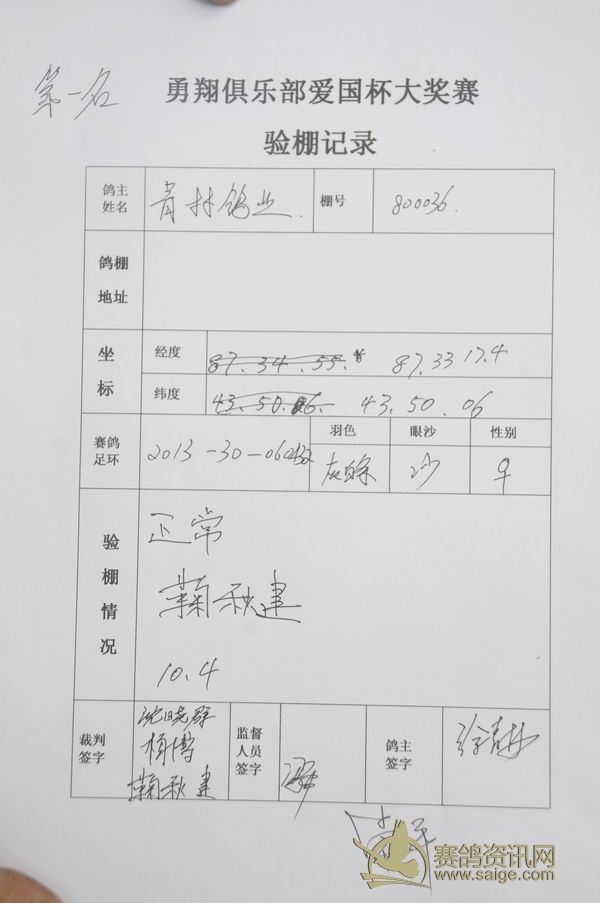 第一名
勇翔俱乐部爱国杯大奖赛
验棚记录
鸽主姓名 青林鸽业 棚号 800036
鸽棚地址
坐标 经度 87.34.55. 87.33 17.4
纬度 43.50.06. 43.50.06
赛鸽足环 2013-30-060432 羽色 眼沙 性别
灰 沙 ♀
验棚情况
正常
鞠秋建
10.4
裁判签字 沈晓群
杨博
鞠秋建
监督人员签字
鸽主签字 徐青林
赛鸽资讯网
www.saige.com